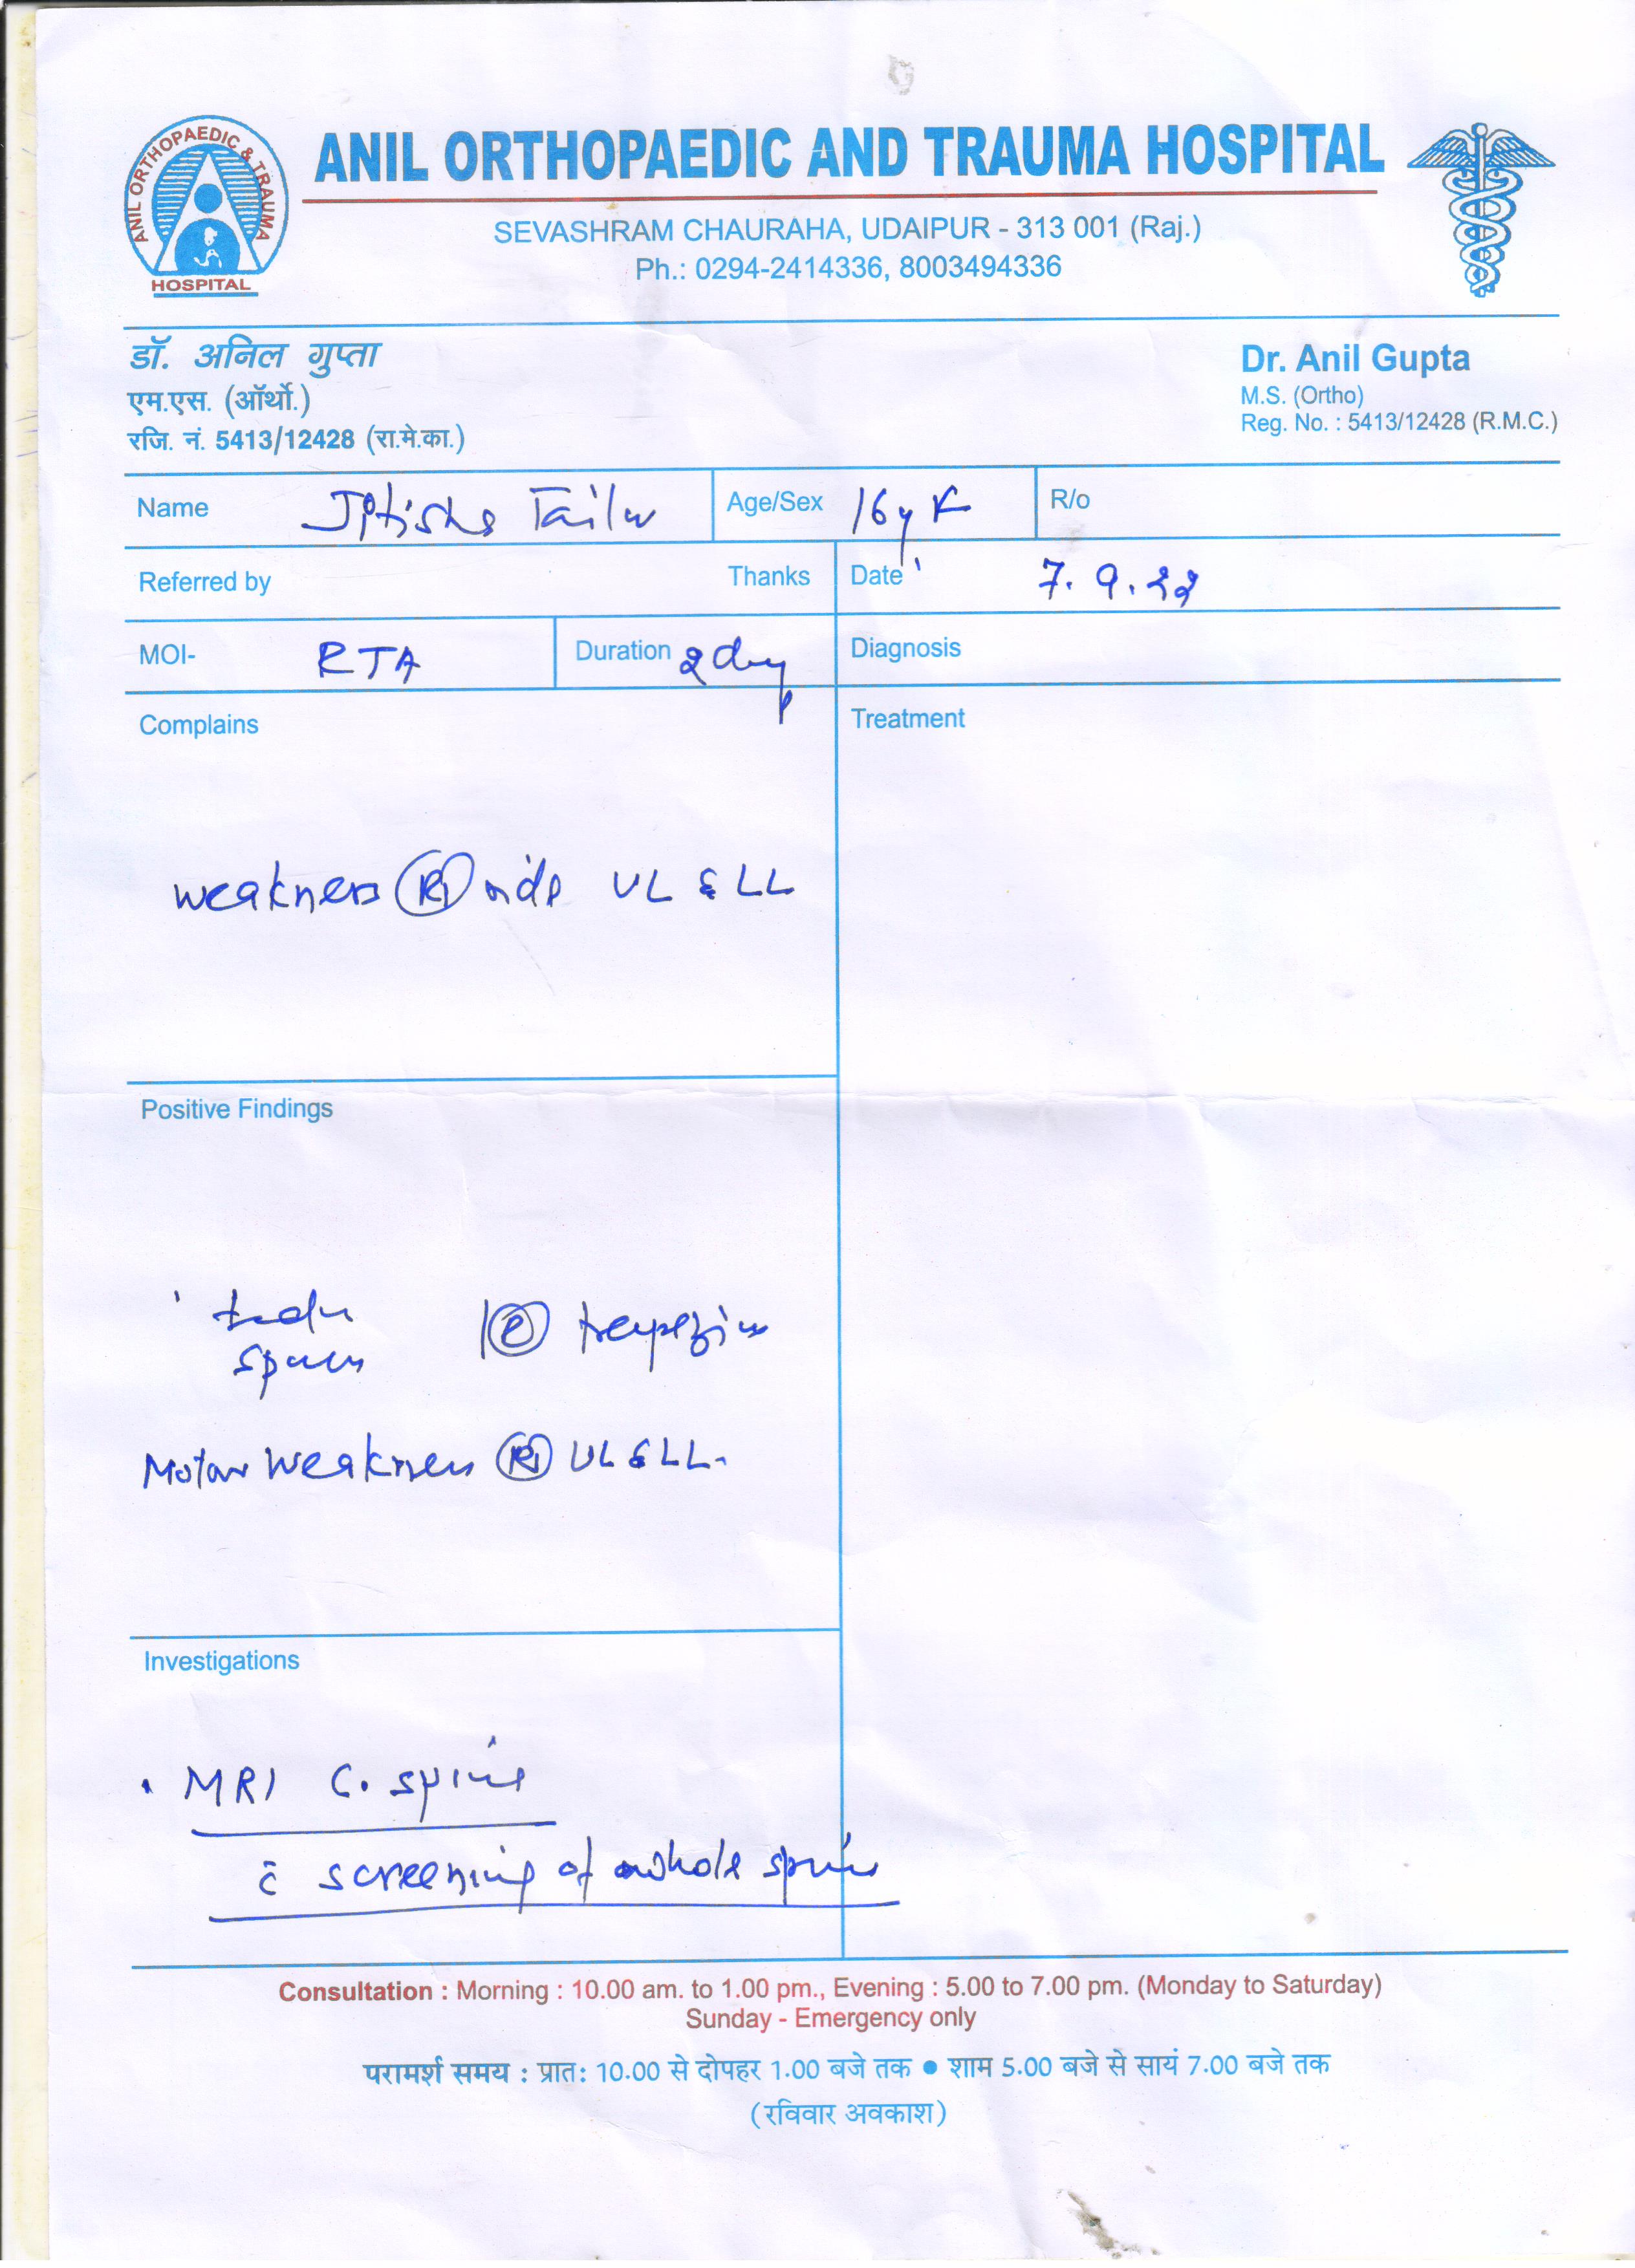 ANIL ORTHOPAEDIC & TRAUMA
HOSPITAL
ANIL ORTHOPAEDIC AND TRAUMA HOSPITAL
SEVASHRAM CHAURAHA, UDAIPUR - 313 001 (Raj.)
Ph.: 0294-2414336, 8003494336
डॉ. अनिल गुप्ता
एम.एस. (ऑर्थो.)
रजि. नं. 5413/12428 (रा.मे.का.)
Dr. Anil Gupta
M.S. (Ortho)
Reg. No. : 5413/12428 (R.M.C.)
Name Age/Sex 16y F R/o
Referred by Thanks Date 7.9.22
MOI- RTA Duration 2 day Diagnosis
Complains Treatment
weakness (R) side UL & LL
Positive Findings
trapezius
spasm
Motor weakness (R) UL & LL.
Investigations
. MRI C. spine
c̄ screening of whole spine
Consultation : Morning : 10.00 am. to 1.00 pm., Evening : 5.00 to 7.00 pm. (Monday to Saturday)
Sunday - Emergency only
परामर्श समय : प्रात: 10.00 से दोपहर 1.00 बजे तक ● शाम 5.00 बजे से सायं 7.00 बजे तक
(रविवार अवकाश)